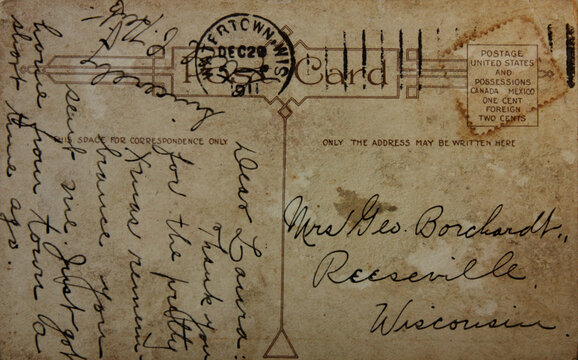 WATERTOWN, WIS.
DEC 29
1911
Post Card
POSTAGE
UNITED STATES
AND
POSSESSIONS
CANADA MEXICO
ONE CENT
FOREIGN
TWO CENTS
THIS SPACE FOR CORRESPONDENCE ONLY
ONLY THE ADDRESS MAY BE WRITTEN HERE
Dear Laura:
Thank you
for the pretty
Xmas remem-
brance you
sent me. Just got
home from town a
short time ago.
Sincerely
Mrs Geo. Borchardt,
Reeseville,
Wisconsin.